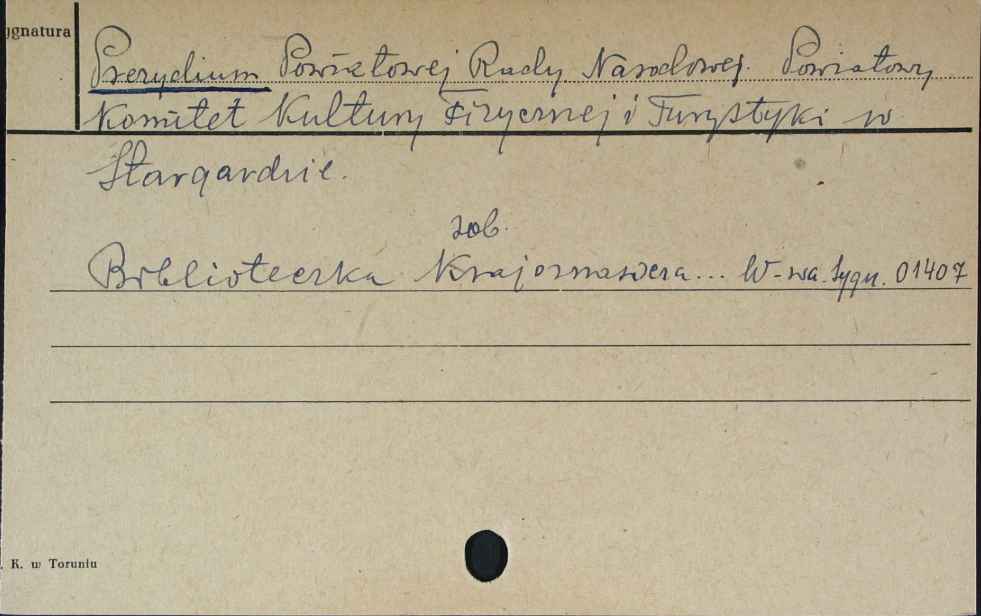 ygnatura
Prezydium Powiatowej Rady Narodowej. Powiatowy
Komitet Kultury Fizycznej i Turystyki w
Stargardzie.
zob.
Biblioteczka Krajoznawcza... W-wa. Sygn. 01407
. K. w Toruniu